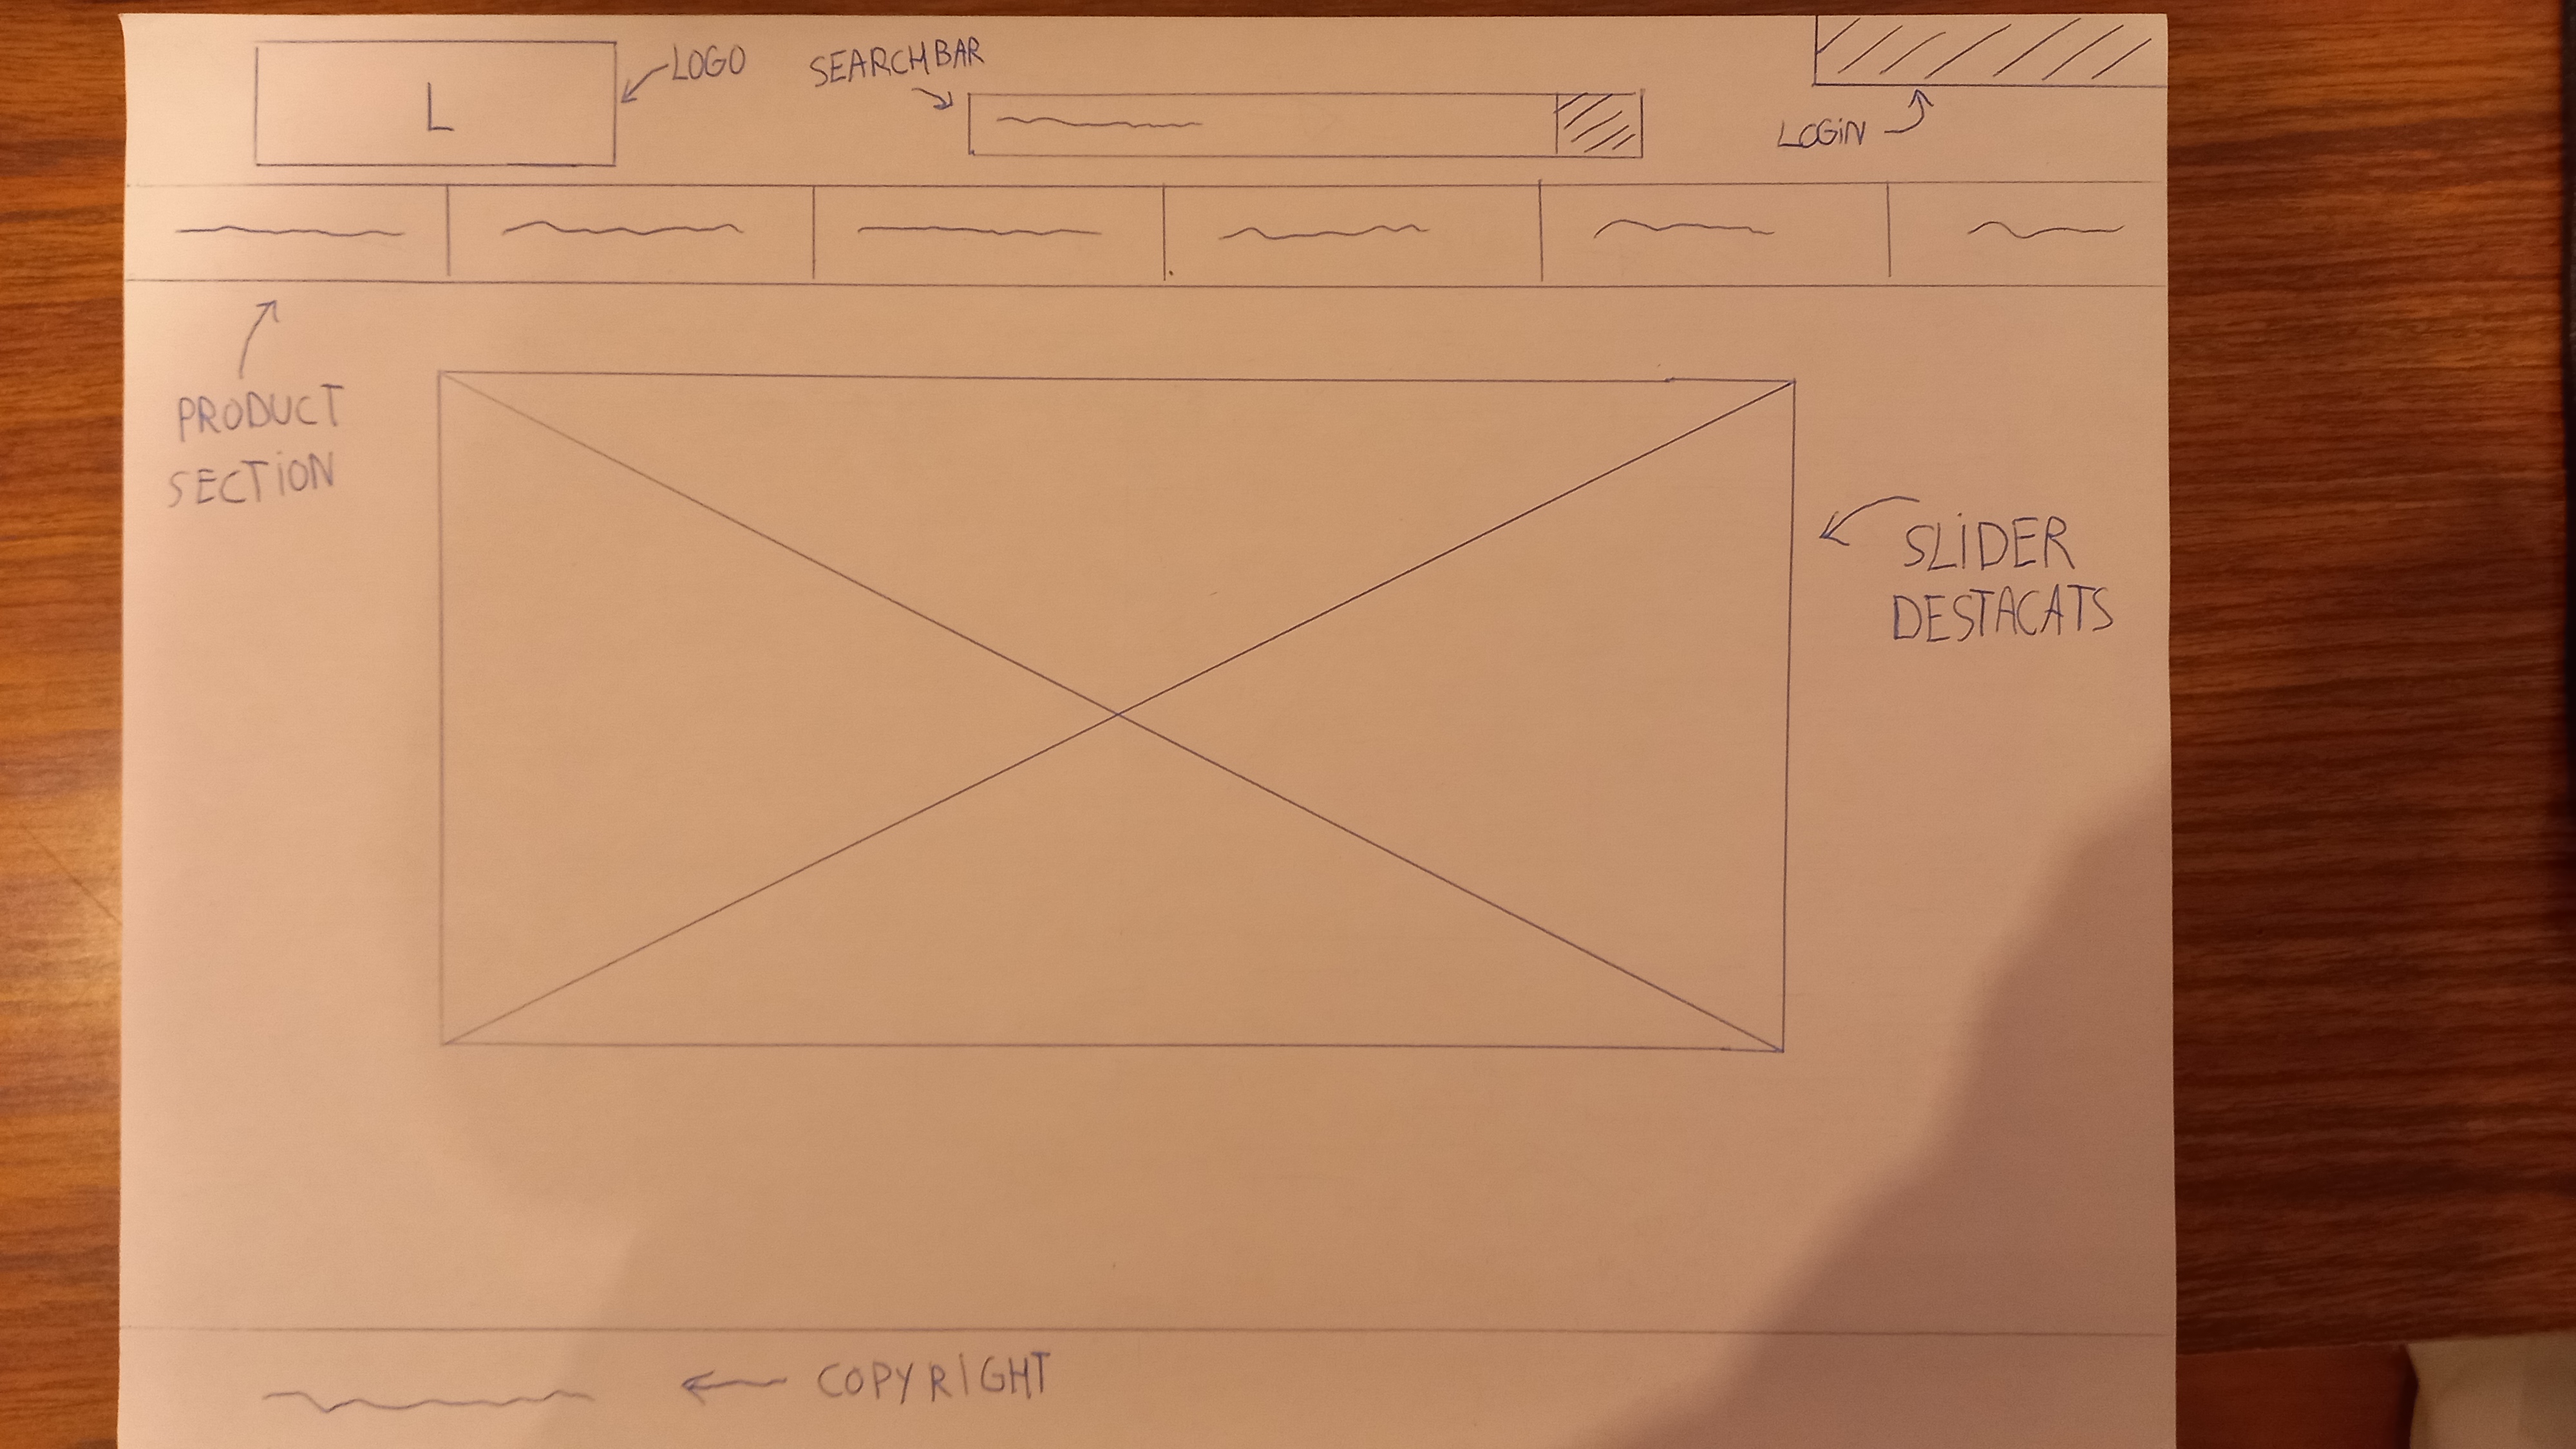 L
LOGO
SEARCHBAR
LOGIN
PRODUCT
SECTION
SLIDER
DESTACATS
COPYRIGHT